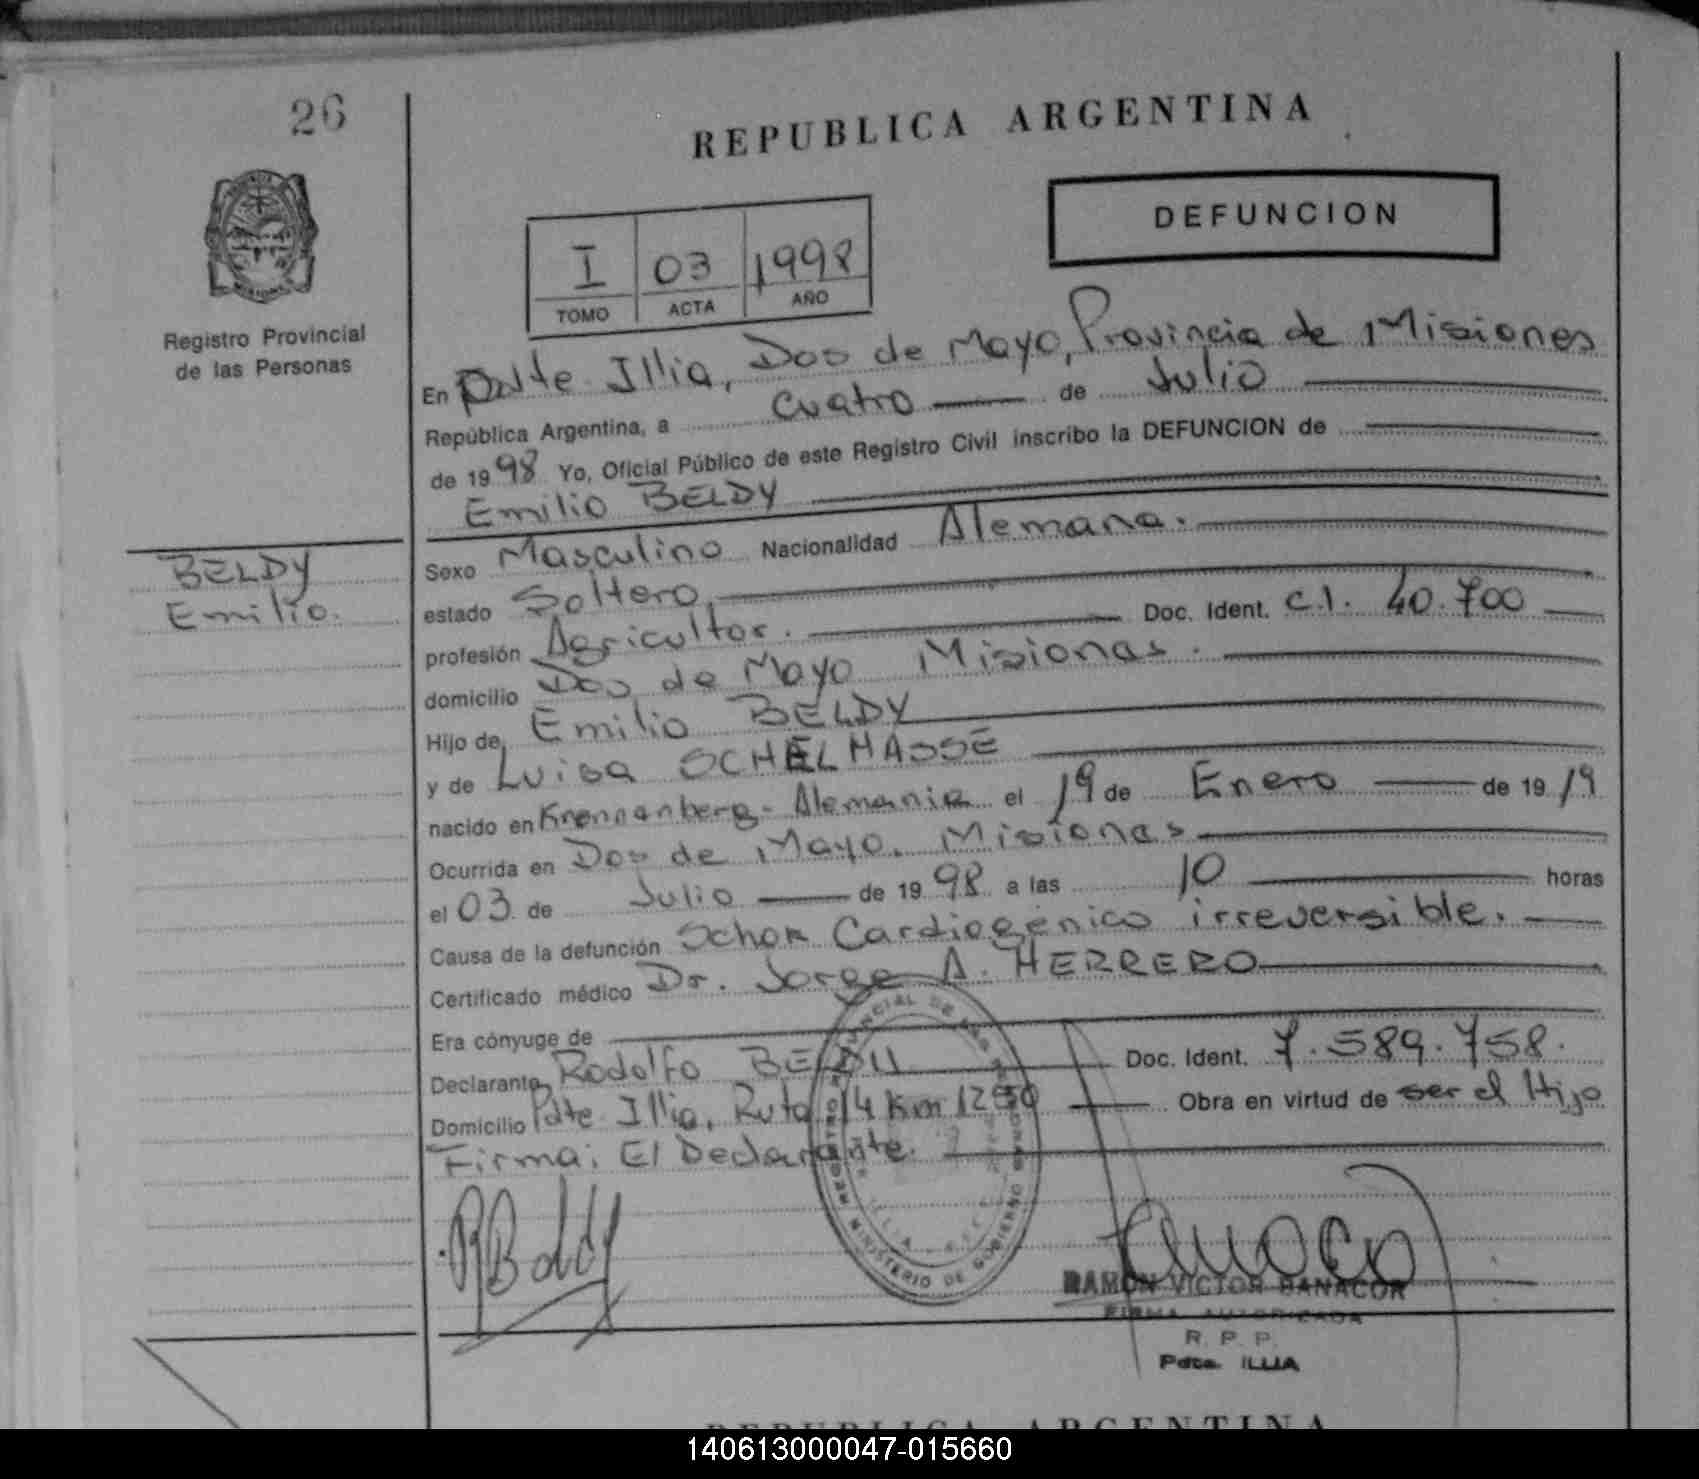 26
REPUBLICA ARGENTINA
DEFUNCION
I 03 1998
TOMO ACTA AÑO
Registro Provincial
de las Personas
En Pdte. Illia, Dos de Mayo, Provincia de Misiones
República Argentina, a cuatro de Julio
de 1998 Yo, Oficial Público de este Registro Civil inscribo la DEFUNCION de
Emilio BELDY
BELDY
Emilio.
Sexo Masculino Nacionalidad Alemana.
estado Soltero
profesión Agricultor. Doc. Ident. C.I. 40.700
domicilio Dos de Mayo Misiones.
Hijo de Emilio BELDY
y de Luisa SCHELHASSE
nacido en Krennanberg - Alemania el 19 de Enero de 1919
Ocurrida en Dos de Mayo. Misiones
el 03 de Julio de 1998 a las 10 horas
Causa de la defunción Schok Cardiogénico irreversible.
Certificado médico Dr. Jorge A. HERRERO
Era cónyuge de
Declarante Rodolfo Doc. Ident. 7.589.758.
Domicilio Pdte. Illia, Ruta 14 Km 1250 Obra en virtud de ser el Hijo
Firma: El Declarante.
MINISTERIO DE GOBIERNO
RAMON VICTOR BANACOR
FIRMA AUTORIZADA
R. P. P.
Pdte. ILLIA
REPUBLICA ARGENTINA
140613000047-015660